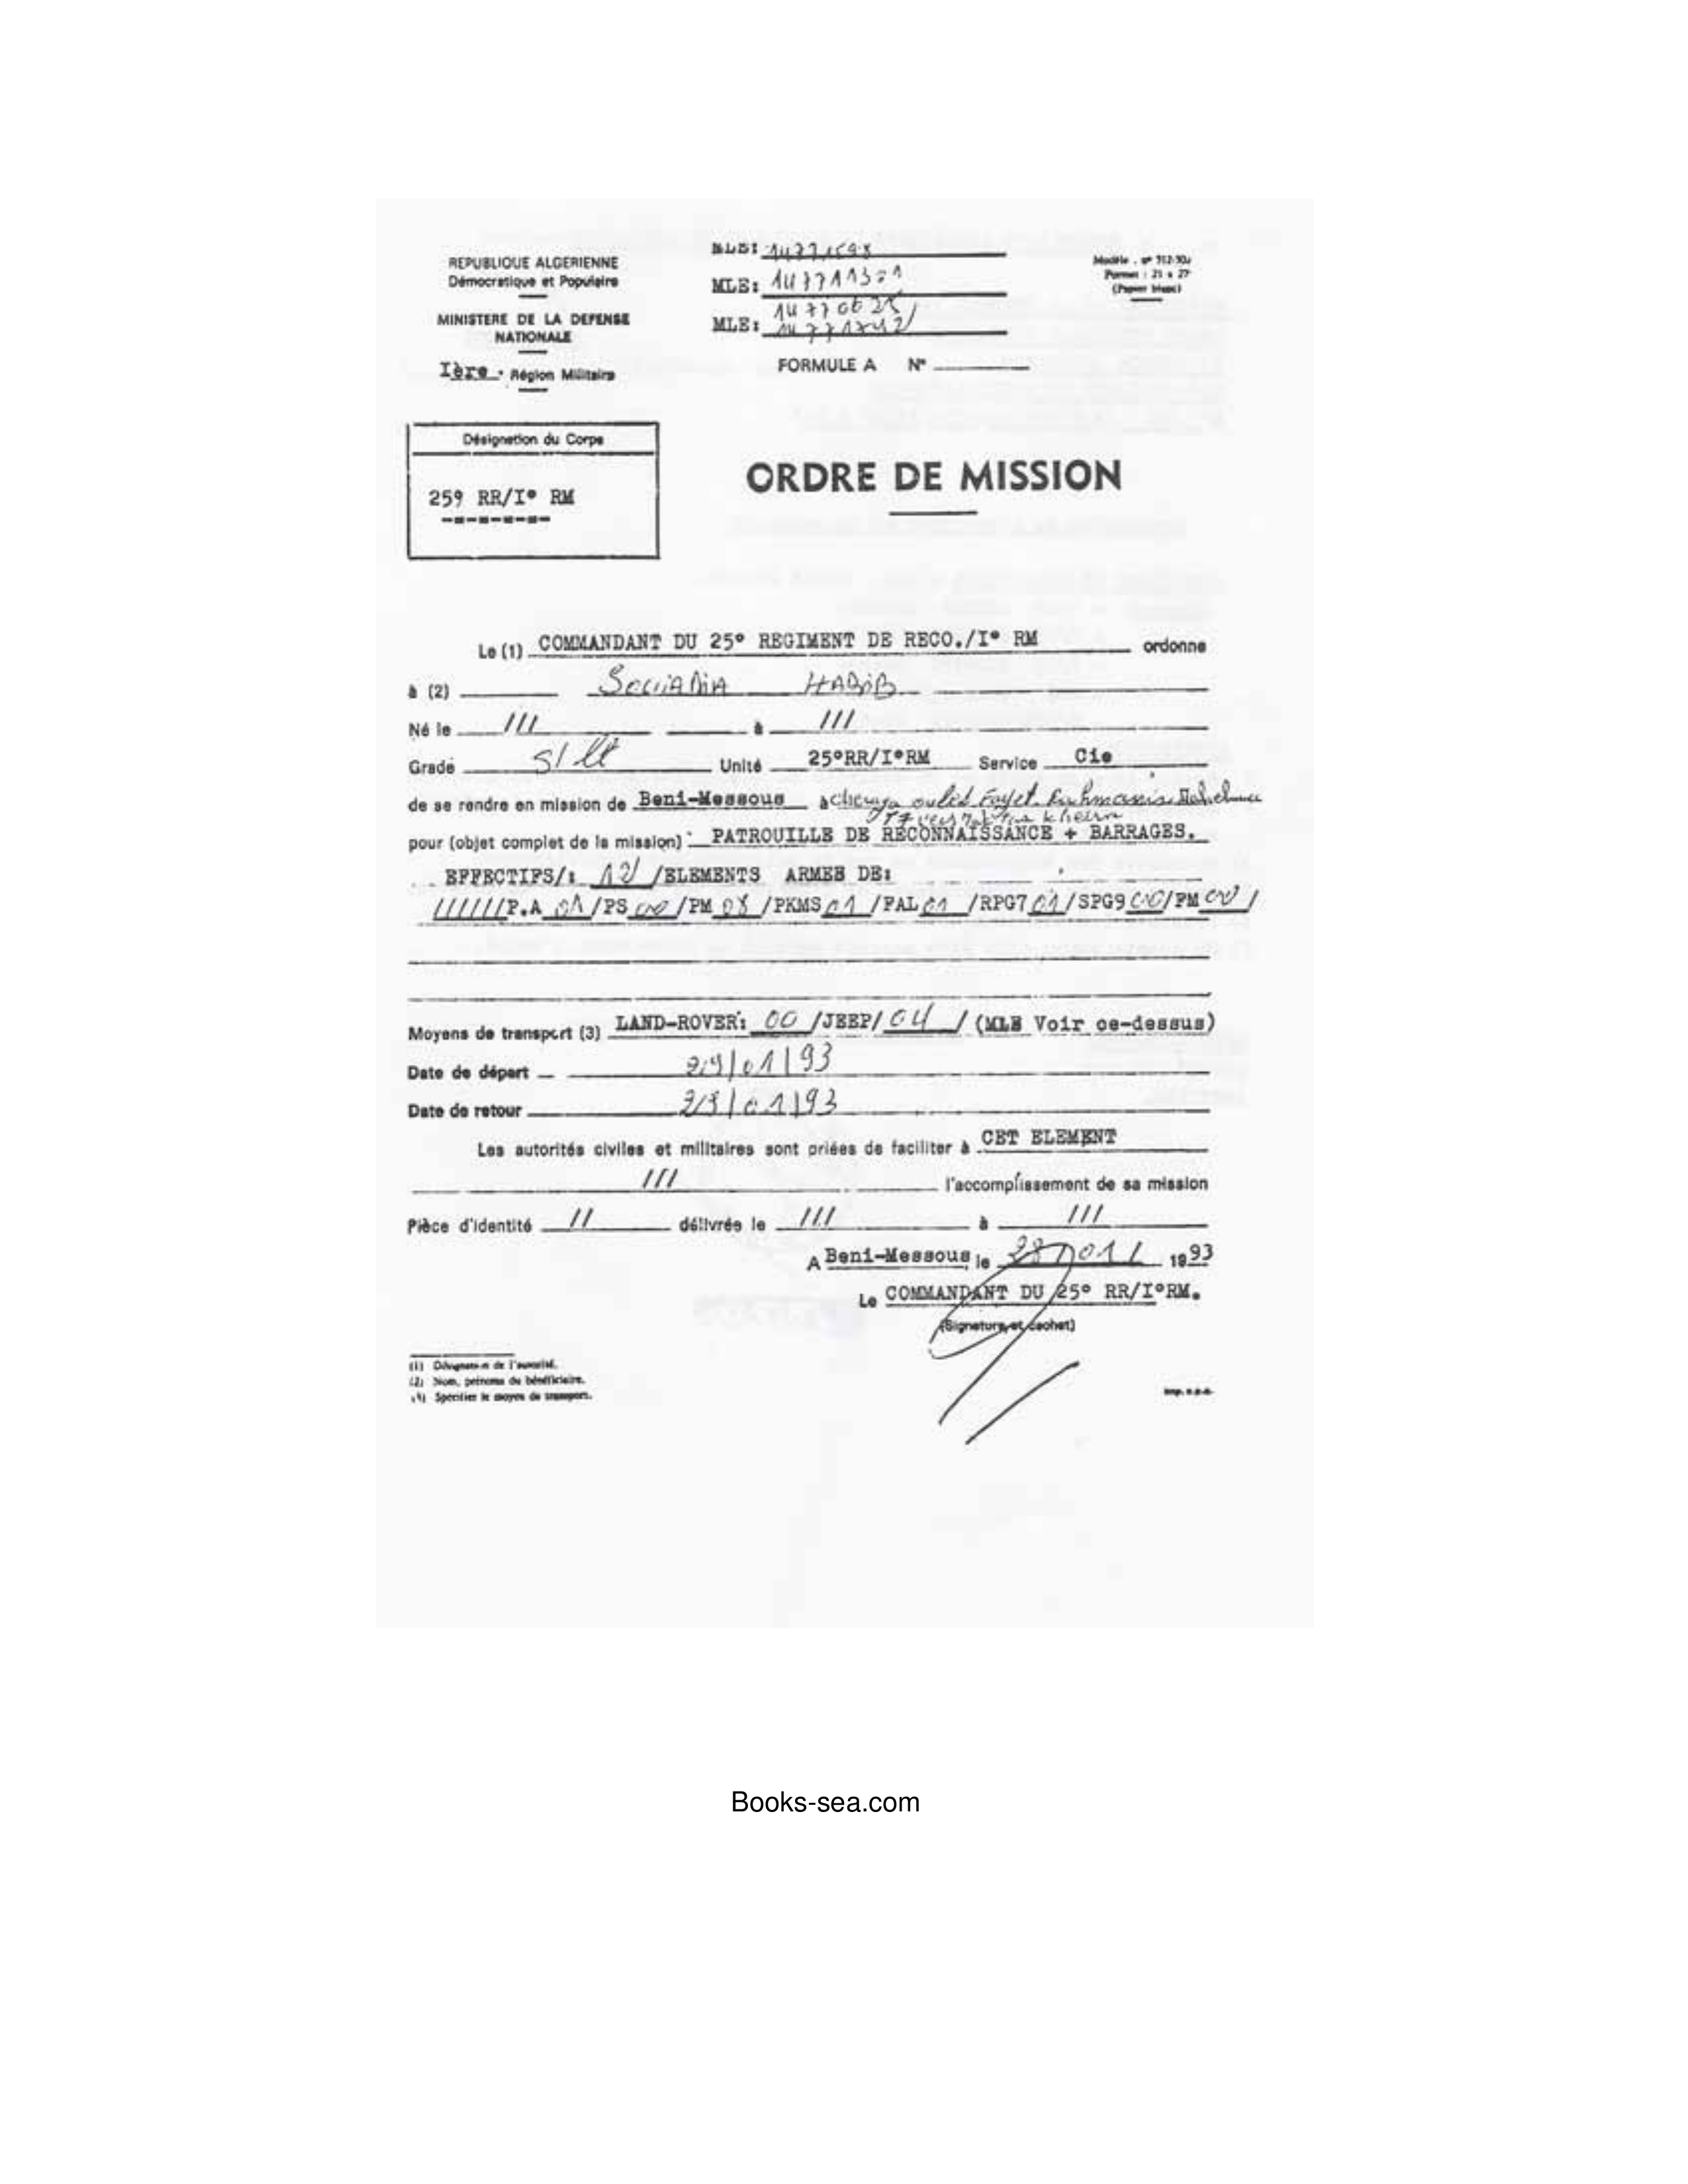 REPUBLIQUE ALGERIENNE
Démocratique et Populaire
MINISTERE DE LA DEFENSE
NATIONALE
Ière Région Militaire
MLE:
MLE:
MLE:
FORMULE A N°
Modèle . n°
Format : 21 x 27
(Papier blanc)
Désignation du Corps
259 RR/I° RM
ORDRE DE MISSION
Le (1) COMMANDANT DU 25° REGIMENT DE RECO./I° RM ordonne
à (2) SOUAIDIA HABIB
Né le /// à ///
Grade S/Lt Unité 25°RR/I°RM Service Cie
de se rendre en mission de Beni-Messous à cheraga ouled Fayet
pour (objet complet de la mission) : PATROUILLE DE RECONNAISSANCE + BARRAGES.
EFFECTIFS/: 12/ /ELEMENTS ARMES DE:
//////P.A 01 /PS 00 /PM 08 /PKMS 01 /FAL 01 /RPG7 01 /SPG9 00/FM 00 /
Moyens de transport (3) LAND-ROVER: 00 /JEEP/ 04 / (MLE Voir ce-dessus)
Date de départ /01/93
Date de retour /01/93
Les autorités civiles et militaires sont priées de faciliter à CET ELEMENT
/// l'accomplissement de sa mission
Pièce d'identité // délivrée le /// à ///
A Beni-Messous, le 28 01 1993
Le COMMANDANT DU 25° RR/I°RM.
(Signature et cachet)
(1) Désignation de l'autorité.
(2) Nom, prénoms du bénéficiaire.
(3) Spécifier le moyen de transport.
Books-sea.com